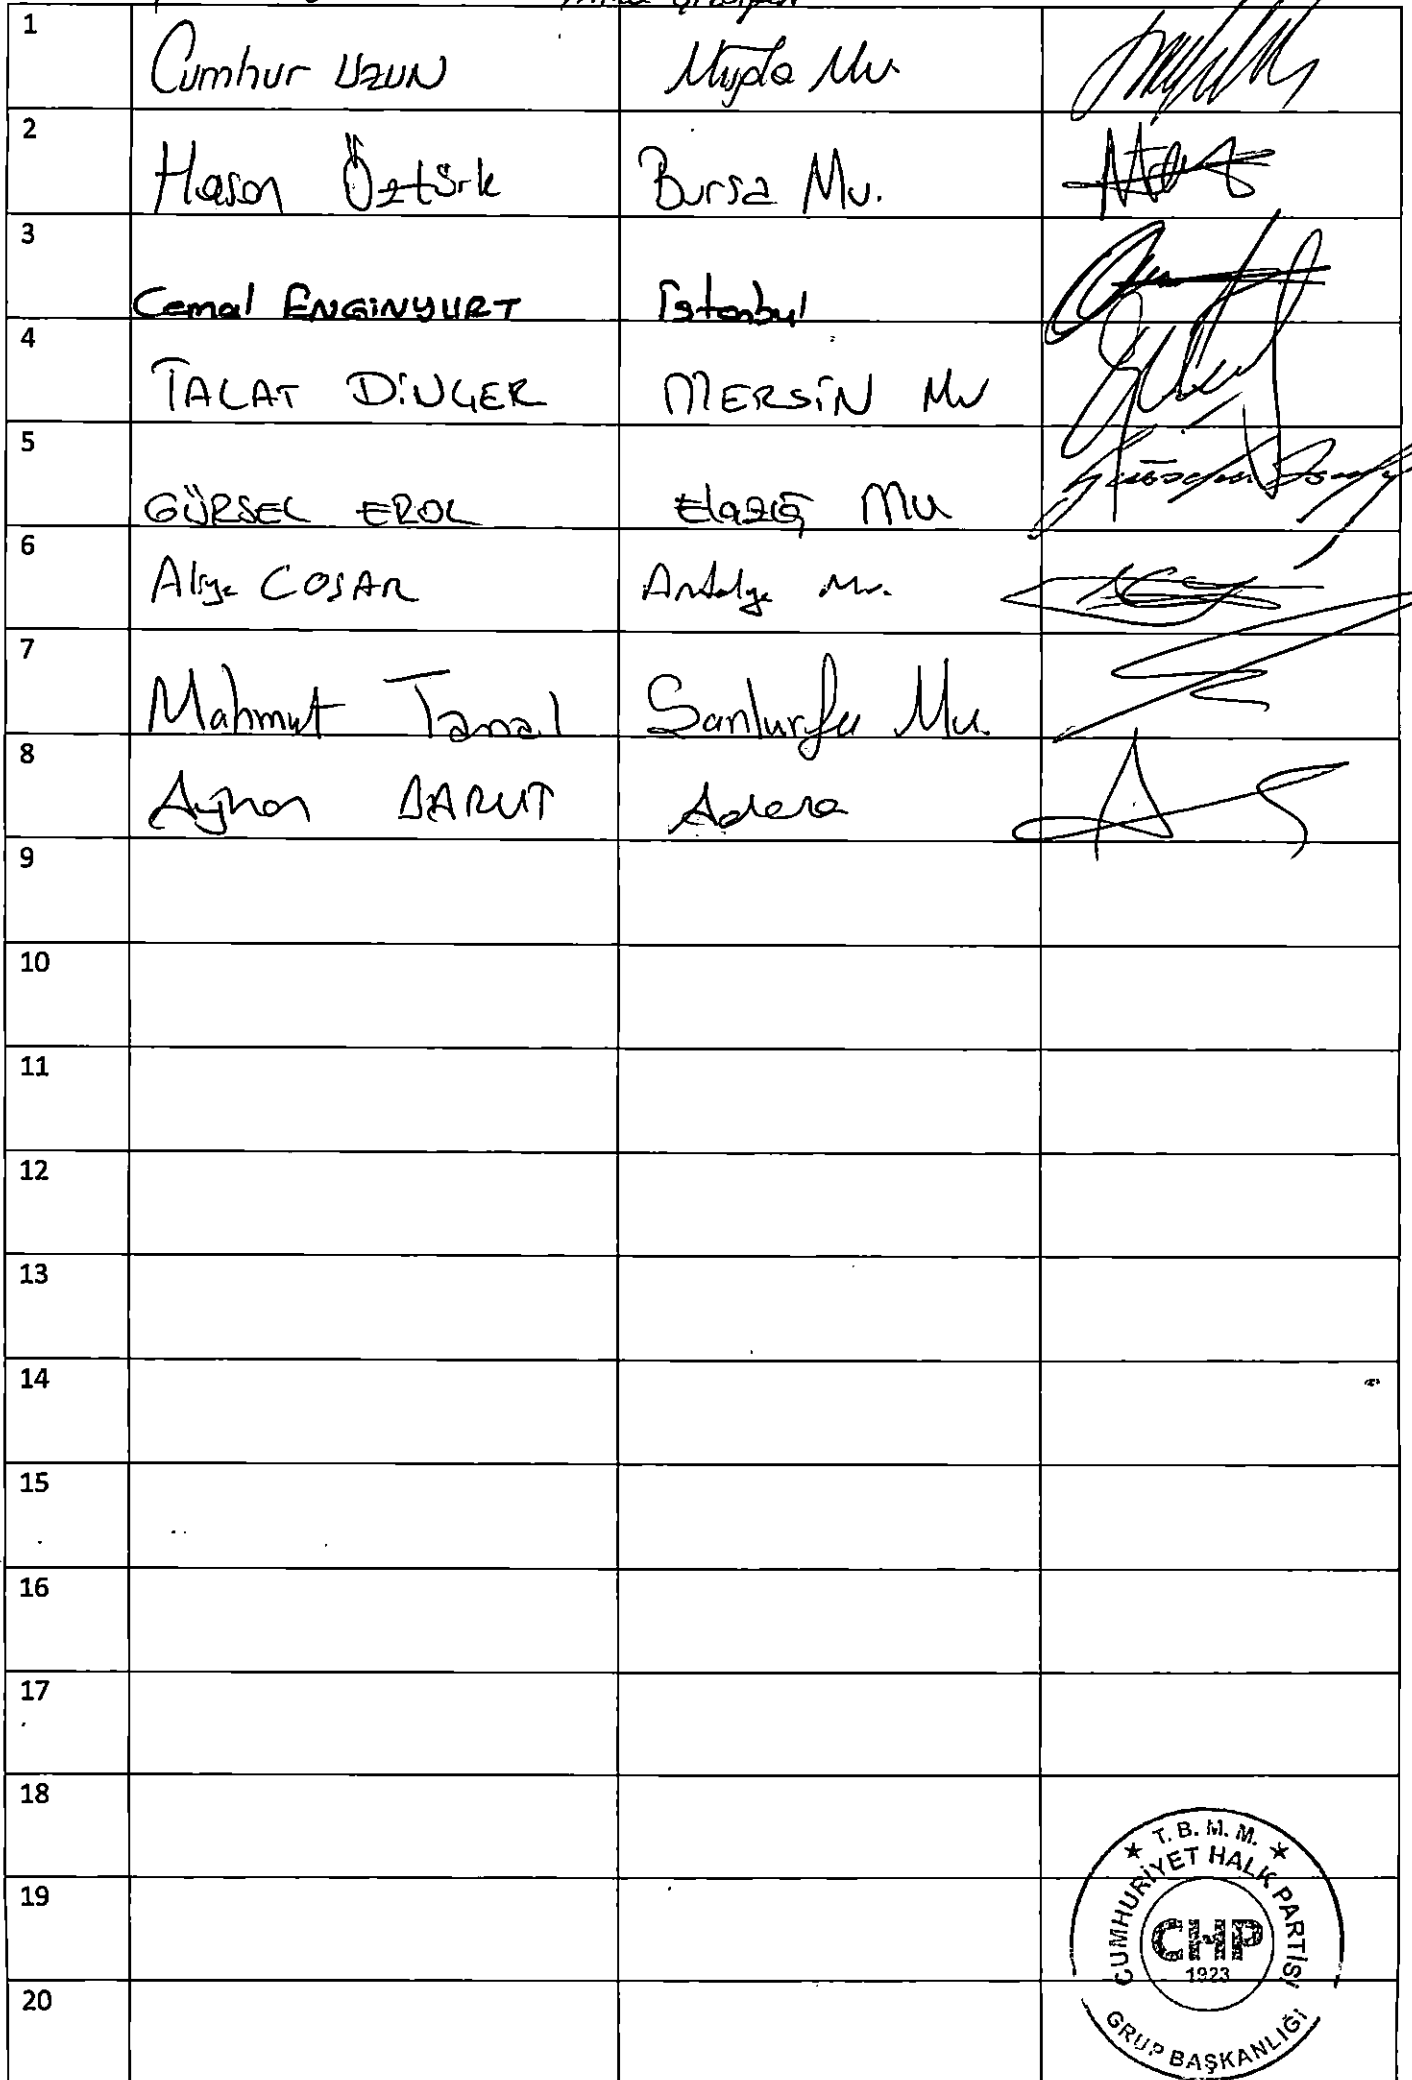 1 Cumhur UZUN Muğla Mv.
2 Hasan Öztürk Bursa Mv.
3 Cemal ENGİNYURT İstanbul
4 TALAT DİNÇER MERSİN Mv
5 GÜRSEL EROL Elazığ Mv
6 Aliye COŞAR Antalya Mv.
7 Mahmut Tanal Şanlıurfa Mv.
8 Ayhan BARUT Adana
9
10
11
12
13
14
15
16
17
18
19
20
★ T. B. M. M. ★
CUMHURİYET HALK PARTİSİ
CHP
1923
GRUP BAŞKANLIĞI